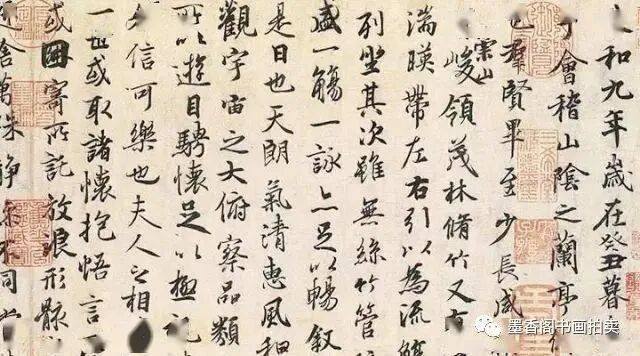 和九年歲在癸丑暮
會稽山陰之蘭亭
群賢畢至少長咸
崇山
峻領茂林脩竹又有
湍暎帶左右引以為流觴
列坐其次雖無絲竹管
盛一觴一詠亦足以暢敘
是日也天朗氣清惠風和
觀宇宙之大俯察品類
所以遊目騁懷足以極視
信可樂也夫人之相
一世或取諸懷抱悟言
或因寄所託放浪形骸
舍萬殊靜躁不同
墨香阁书画拍卖